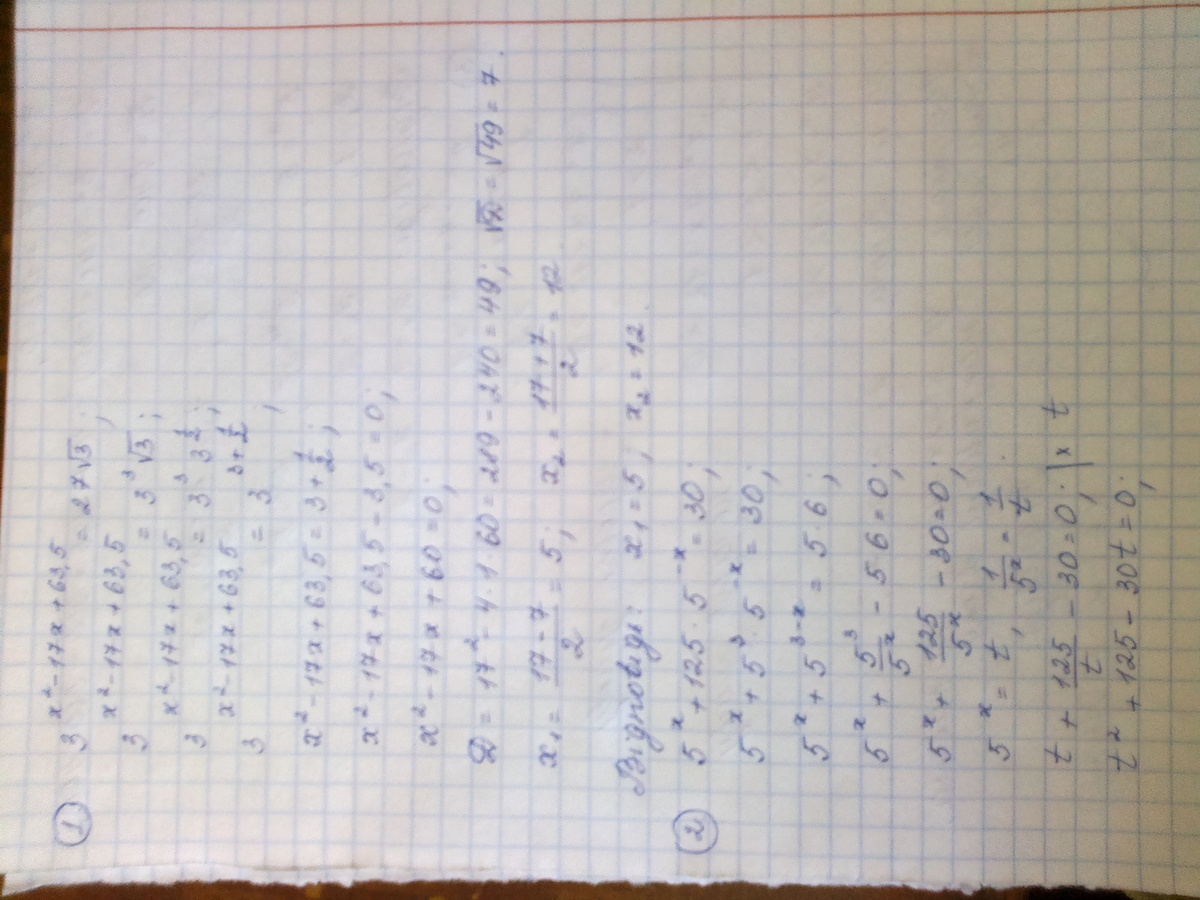 ① 3^(x² - 17x + 63,5) = 27√3 ;
3^(x² - 17x + 63,5) = 3³√3 ;
3^(x² - 17x + 63,5) = 3³ 3^(1/2) ;
3^(x² - 17x + 63,5) = 3^(3 + 1/2) ;
x² - 17x + 63,5 = 3 + 1/2 ;
x² - 17x + 63,5 - 3,5 = 0 ;
x² - 17x + 60 = 0 ;
D = 17² - 4 · 1 · 60 = 289 - 240 = 49 ; √D = √49 = 7 .
x₁ = (17 - 7)/2 = 5 ; x₂ = (17 + 7)/2 = 12 .
Відповідь: x₁ = 5 ; x₂ = 12 .
② 5^x + 125 · 5^(-x) = 30 ;
5^x + 5³ · 5^(-x) = 30 ;
5^x + 5^(3-x) = 5 · 6 ;
5^x + 5³/5^x - 5 6 = 0 ;
5^x + 125/5^x - 30 = 0 ;
5^x = t , 1/5^x = 1/t .
t + 125/t - 30 = 0 ; | x t
t² + 125 - 30t = 0 ;